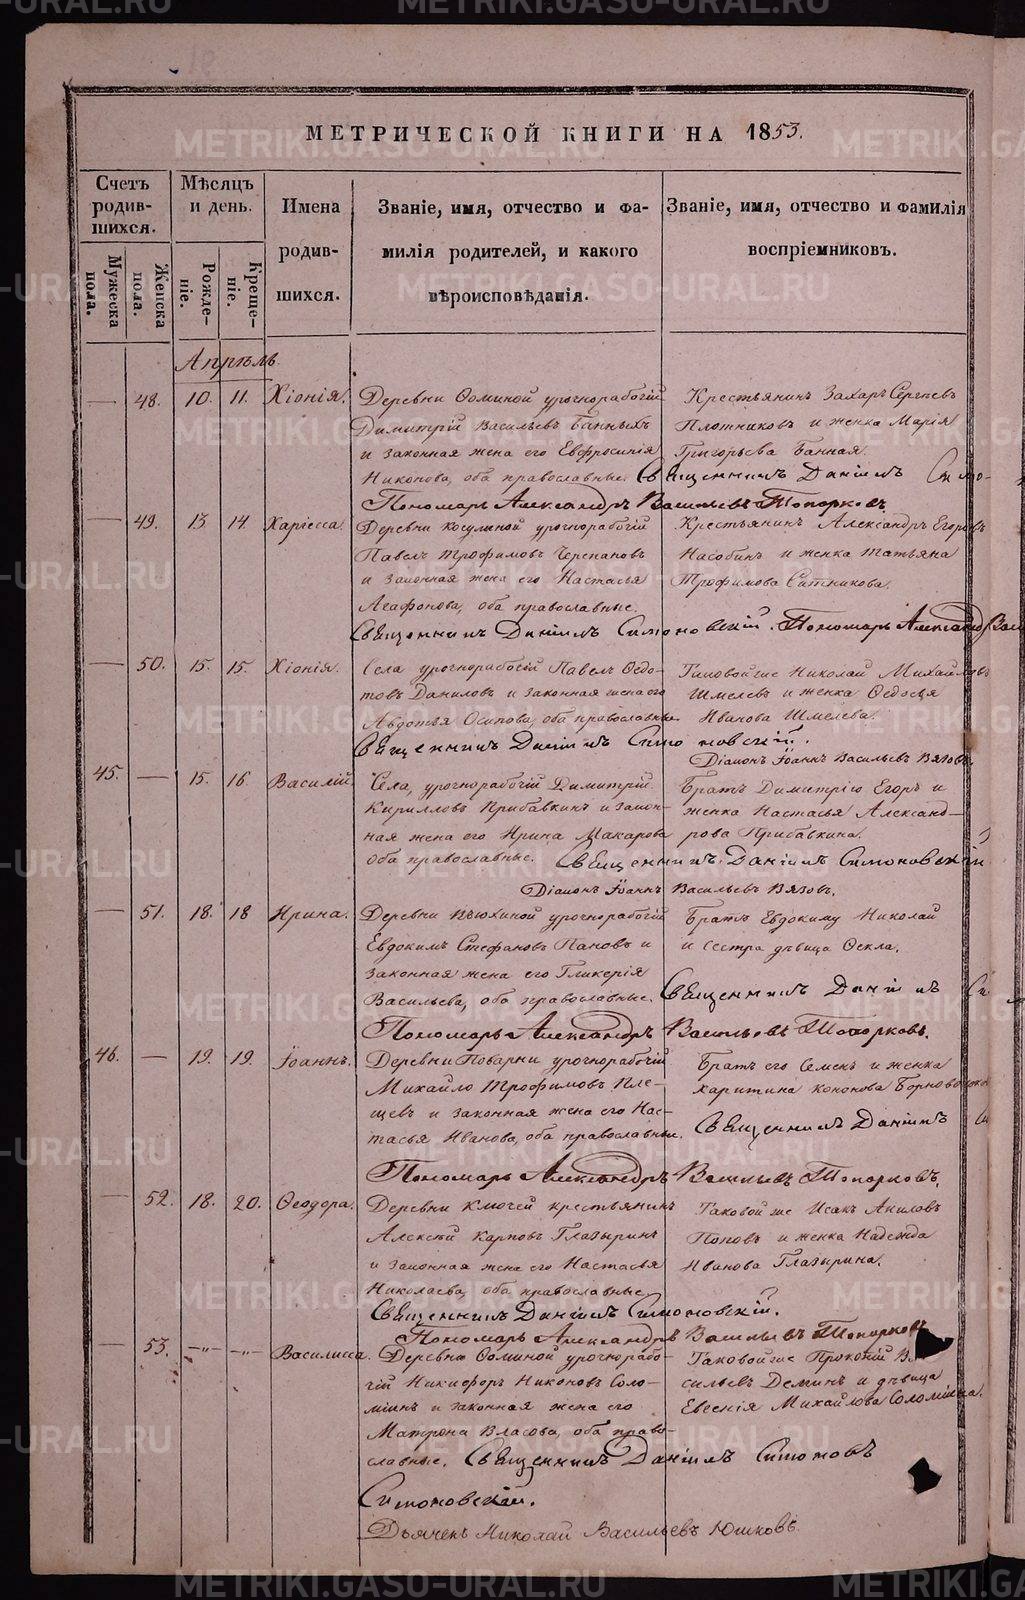 МЕТРИЧЕСКОЙ КНИГИ НА 1853.
Счетъ родившихся.
Мѣсяцъ и день.
Имена родившихся.
Званіе, имя, отчество и фамилія родителей, и какого вѣроисповѣданія.
Званіе, имя, отчество и фамилія воспріемниковъ.
Мужеска пола.
Женска пола.
Рожденіе.
Крещеніе.
Апрѣль
— 48. 10. 11. Хіонія. Деревни Ѳоминой урочнорабочій
Димитрій Васильевъ Банныхъ
и законная жена его Евфросинія
Никонова, оба православные.
Крестьянинъ Захаръ Сергѣевъ
Плотниковъ и женка Марія
Григорьева Банная.
Священникъ Даніилъ Симо-
Пономарь Александръ Васильевъ Топорковъ
— 49. 13. 14. Харіесса. Деревни Косулиной урочнорабочій
Павелъ Трофимовъ Черепановъ
и законная жена его Настасья
Агафонова, оба православные.
Крестьянинъ Александръ Егоровъ
Насобинъ и женка Татьяна
Трофимова Ситникова.
Священникъ Даніилъ Симоновскій. Пономарь Александръ Вас
— 50. 15. 15. Хіонія. Села урочнорабочій Павелъ Ѳедо-
товъ Даниловъ и законная жена его
Авдотья Осипова, оба православные
Таковой же Николай Михайловъ
Шмелевъ и женка Ѳедосья
Иванова Шмелева.
Священникъ Даніилъ Симоновскій.
Діаконъ Іоаннъ Васильевъ Вязовъ.
45. — 15. 16 Василій. Села, урочнорабочій Димитрій
Кирилловъ Прибавкинъ и закон-
ная жена его Ирина Макарова
оба православные.
Братъ Димитрію Егоръ и
женка Настасья Александ-
рова Прибавкина.
Священникъ Даніилъ Симоновскій
Діаконъ Іоаннъ Васильевъ Вязовъ.
— 51. 18. 18 Ирина. Деревни Вьюхиной урочнорабочій
Евдокимъ Стефановъ Пановъ и
законная жена его Гликерія
Васильева, оба православные.
Братъ Евдокиму Николай
и сестра дѣвица Ѳекла.
Священникъ Даніилъ Си
Пономарь Александръ Васильевъ Топорковъ.
46. — 19. 19. Іоаннъ. Деревни Поварни урочнорабочій
Михайло Трофимовъ Пле-
щевъ и законная жена его Нас-
тасья Иванова, оба православные.
Братъ его Семенъ и женка
Харитина Кононова
Священникъ Даніилъ Си
Пономарь Александръ Васильевъ Топорковъ.
— 52. 18. 20. Ѳеодора. Деревни Ключей крестьянинъ
Алексѣй Карповъ Глазыринъ
и законная жена его Настасья
Николаева, оба православные
Таковой же Исакъ Акиловъ
Поповъ и женка Надежда
Иванова Глазырина.
Священникъ Даніилъ Симоновскій.
Пономарь Александръ Васильевъ Топорковъ
— 53. -"- -"- Василисса. Деревни Ѳоминой урочнорабо-
чій Никифоръ Никоновъ Соло-
минъ и законная жена его
Матрона Власова, оба право-
славные.
Таковой же Прокопій Ва
сильевъ Деминъ и дѣвица
Евгенія Михайлова Соломина.
Священникъ Даніилъ Симоновъ
Симоновскій.
Дьячекъ Николай Васильевъ Юшковъ.
METRIKI.GASO-URAL.RU